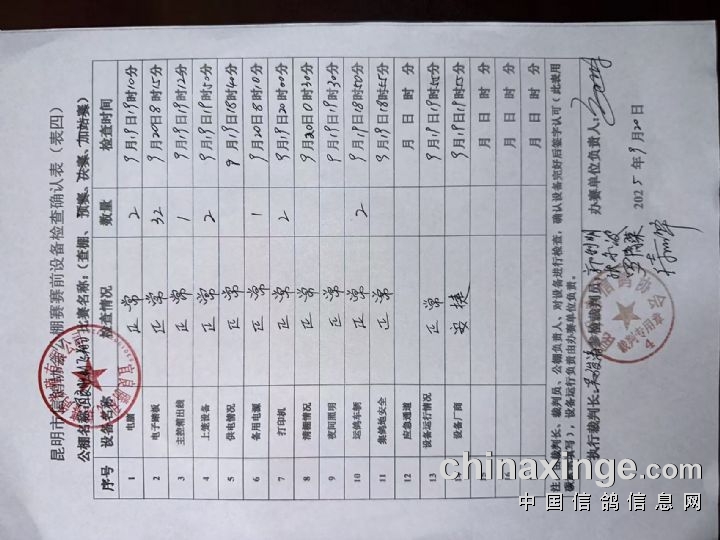 昆明市信鸽协会公棚赛赛前设备检查确认表（表四）
公棚名称：比赛名称：（查棚、预赛、决赛、加站赛）
序号 设备名称 检查情况 数量 检查时间
1 电脑 正常 2 9月19日19时10分
2 电子踏板 正常 32 9月20日8时15分
3 主控箱出线 正常 1 9月19日19时12分
4 上笼设备 正常 2 9月19日19时50分
5 供电情况 正常 9月19日18时40分
6 备用电源 正常 1 9月20日8时10分
7 打印机 正常 2 9月19日20时00分
8 清棚情况 正常 9月20日0时30分
9 夜间照明 正常 9月19日19时30分
10 运鸽车辆 正常 2 9月19日18时50分
11 集鸽地安全 正常 9月19日18时55分
12 应急通道 月 日 时 分
13 设备运行情况 正常 9月19日19时55分
14 设备厂商 安捷 9月19日19时55分
15 月 日 时 分
16 月 日 时 分
17 月 日 时 分
注：由裁判长、裁判员、公棚负责人、对设备进行检查，确认设备完好后签字认可（此表用
填写），设备运行负责由办赛单位负责。
执行裁判长： 裁判员： 办赛单位负责人：
2025年9月20日
裁判专用章
4
chinaxinge.com
中国信鸽信息网